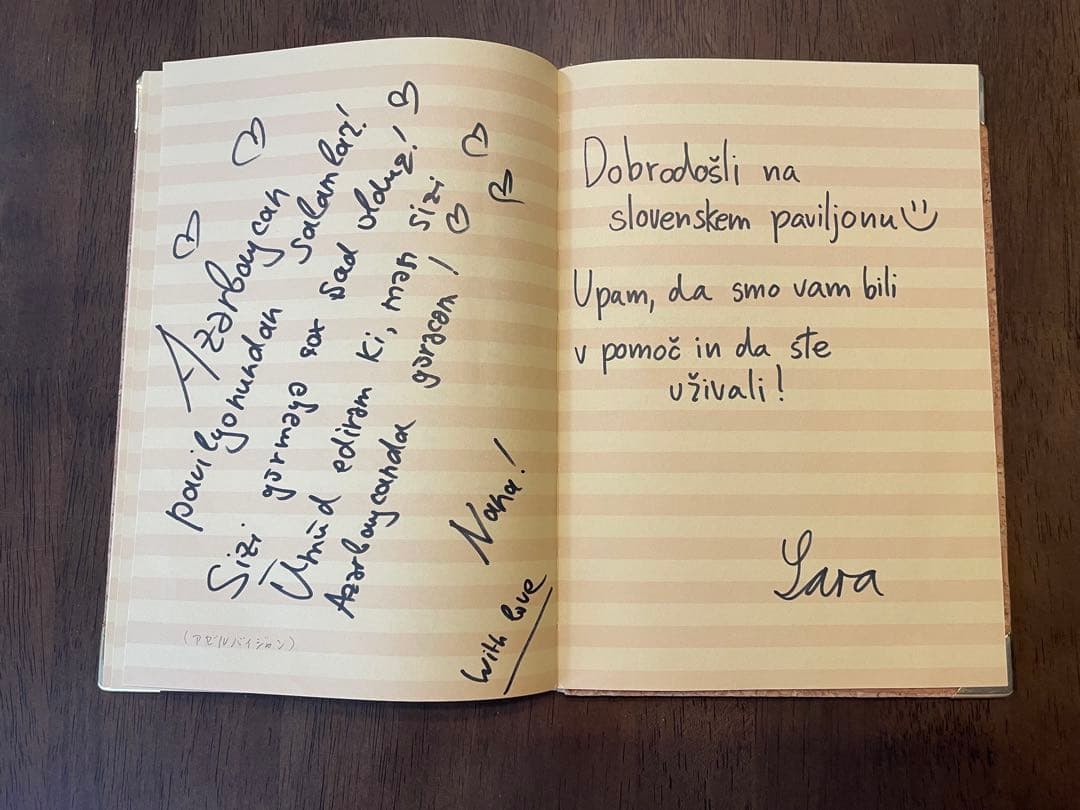 Azərbaycan
pavilyonundan salamlar!
Sizi görməyə çox şad olduq!
Ümid edirəm ki, mən sizi
Azərbaycanda görəcəm!
Nana!
with love
(アゼルバイジャン)
Dobrodošli na
slovenskem paviljonu
Upam, da smo vam bili
v pomoč in da ste
uživali!
Sara